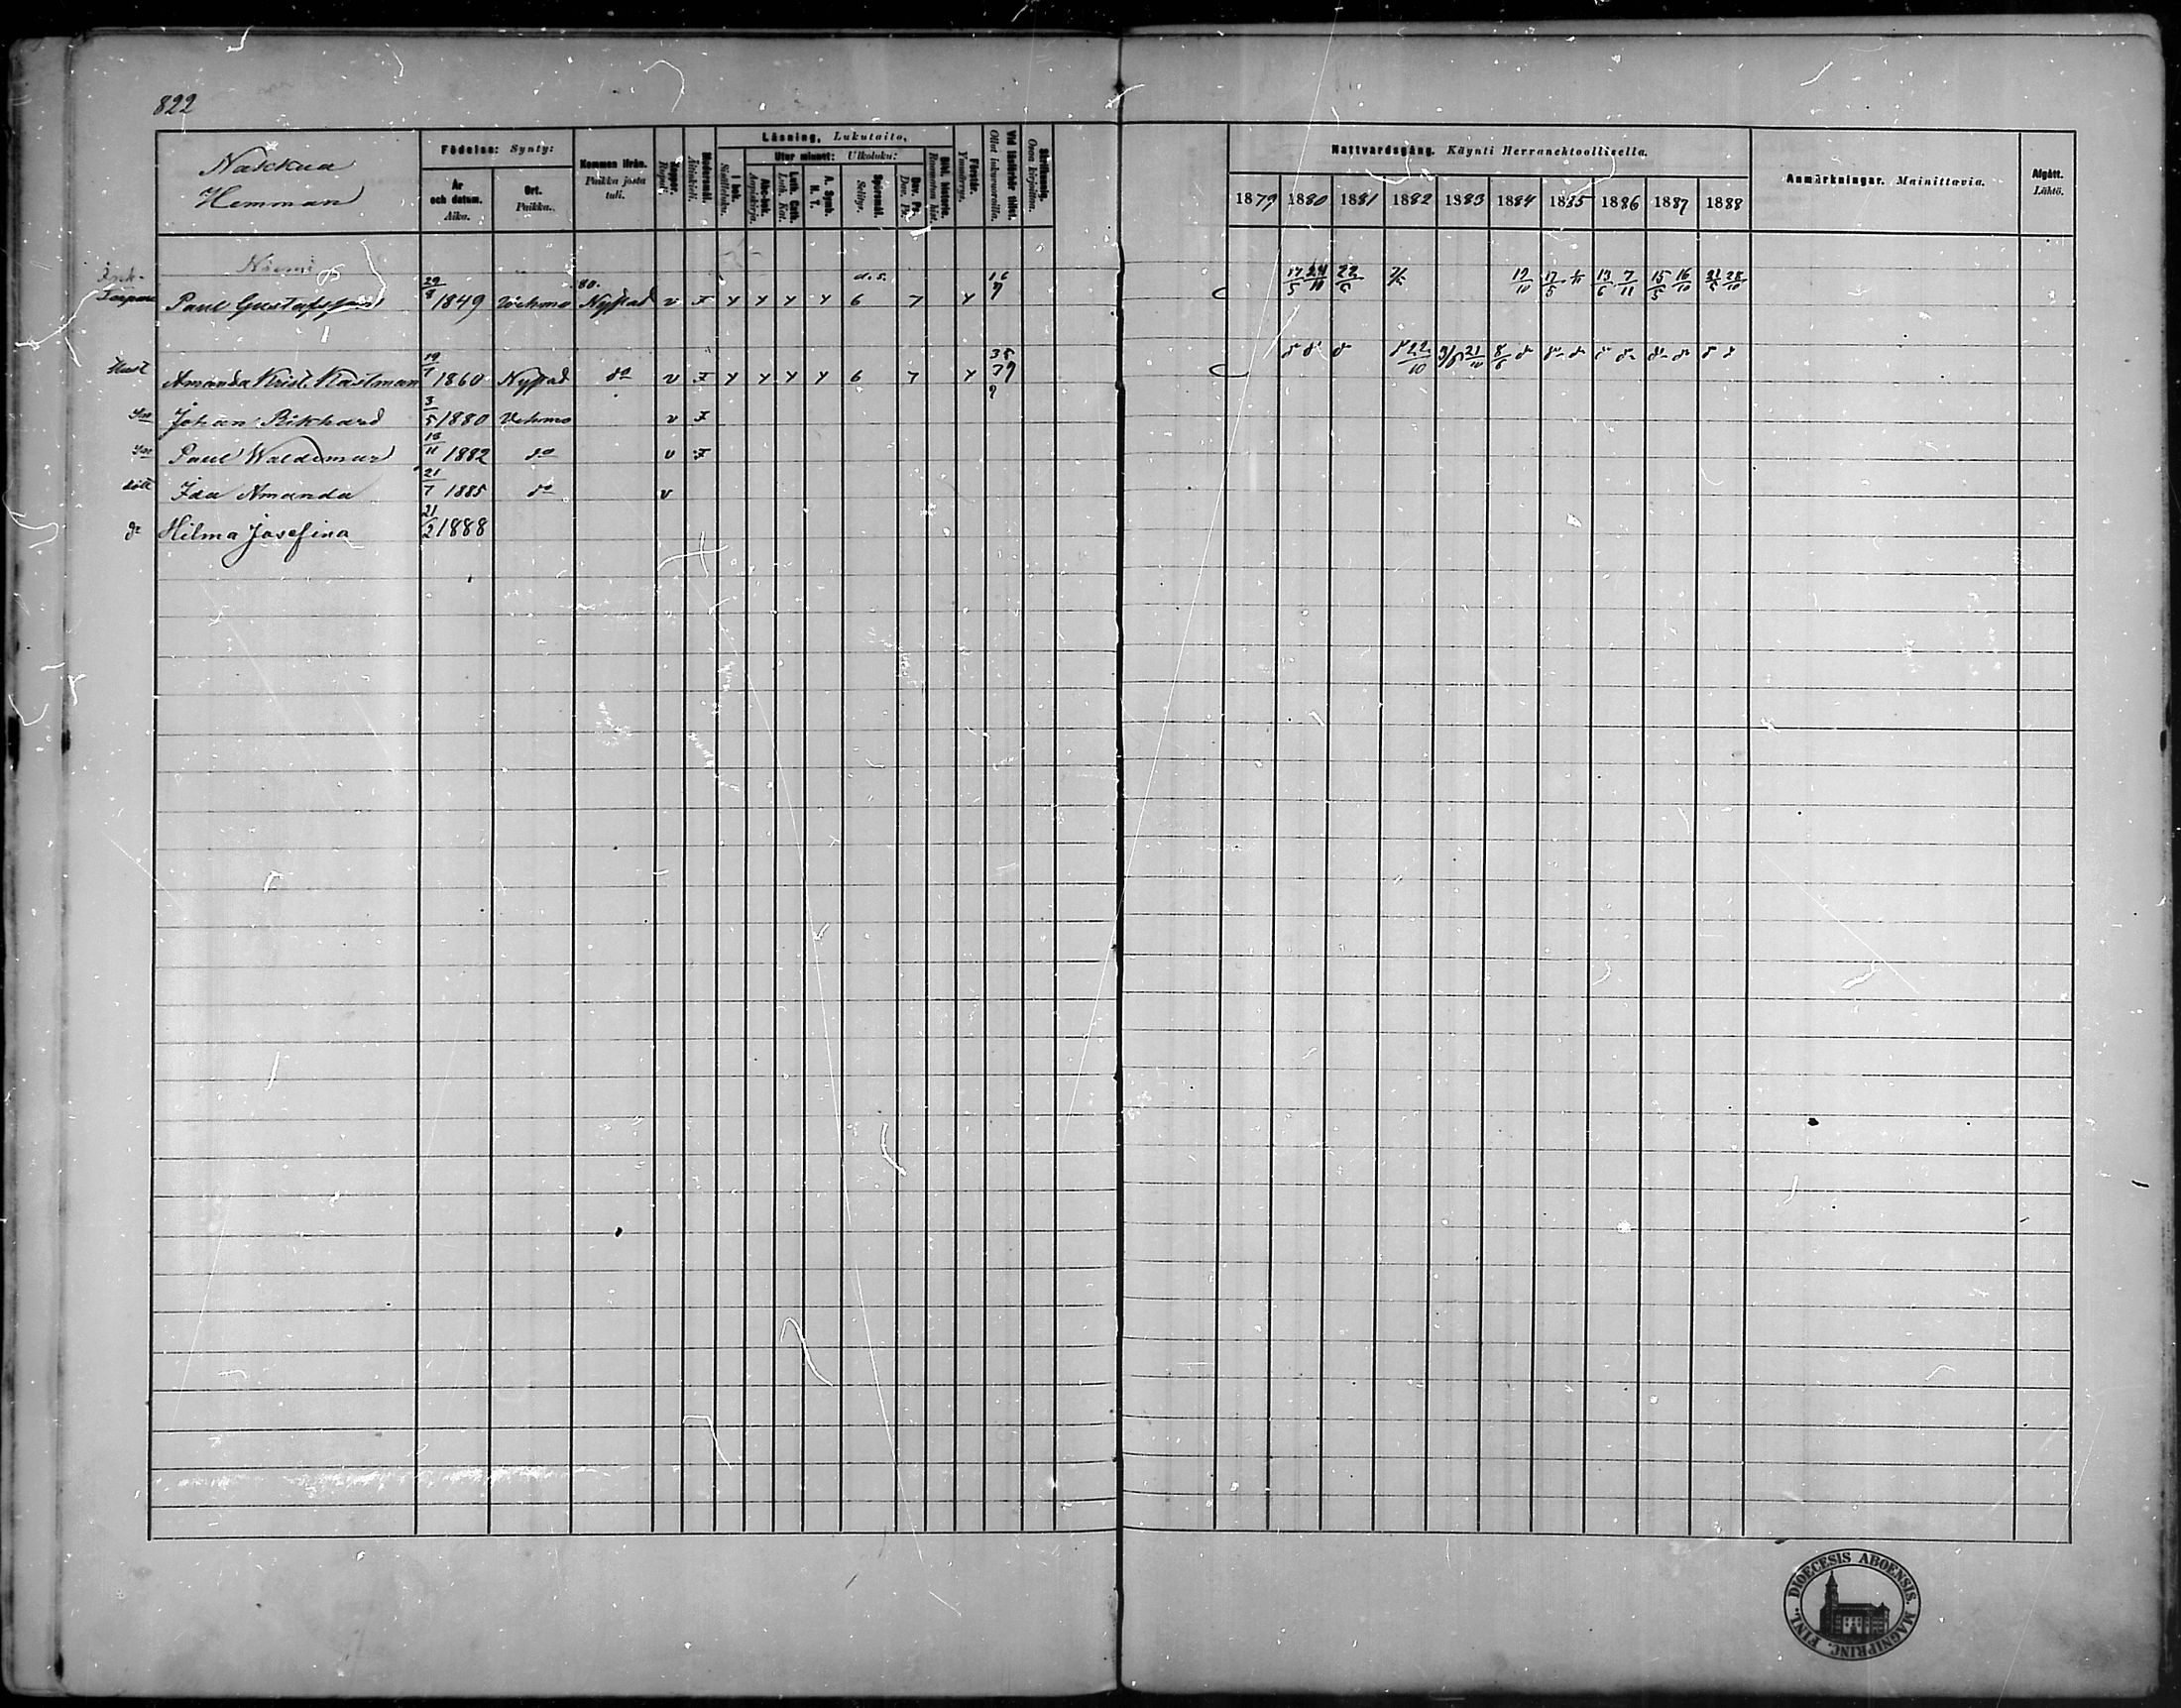 822
Nakkua
Hemman
Födelse: Synty:
År och datum. Aika.
Ort. Paikka.
Kommen ifrån. Paikka josta tuli.
Koppor. Rupuli.
Modersmål. Äitinkieli.
Läsning, Lukutaito,
I bok. Sisältluku.
Utur minnet: Ulkoluku:
Abc-bok. Aapiskirja.
Luth. Cath. Luth. Kat.
A. Symb. H. T.
Spörsmål. Selitys.
Dav. Ps. Dav. Ps.
Bibl. historia. Raamatun hist.
Förstår. Ymmärrys.
Vid läsförhör tillst. Ollut lukuvuorolla.
Skrifkunnig. Osaa kirjoittaa.
Nattvardsgång. Käynti Herranehtoollisella.
1879 1880 1881 1882 1883 1884 1885 1886 1887 1888
Anmärkningar. Mainittavia.
Afgått. Lähtö.
Niemi
Paul Gustafsson 29/8 1849 Wehmo 80. Nystad v F y y y y d.s. 6 7 y 17/5 24/10 22/5 19/10 17/5 13/6 7/11 15/5 16/10 31/5 28/10
Hust Amanda Krist. Kastman 19/7 1860 Nystad do v F y y y y 6 7 y 22/10 21/10 8/6
Son Johan Rikhard 3/5 1880 Vehmo v F
Son Paul Waldemar 13/11 1882 do v F
dott Ida Amanda 21/7 1885 do v
do Hilma Josefina 21/2 1888
FINL. DIOECESIS ABOENSIS. MAGNIPRINC.